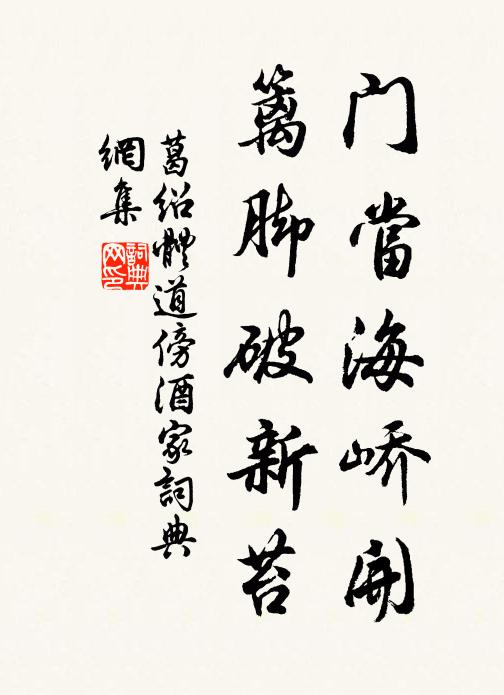 门當海嶠開
籬脚破新苔
葛紹體道傍酒家詞典
網集
詞典網印